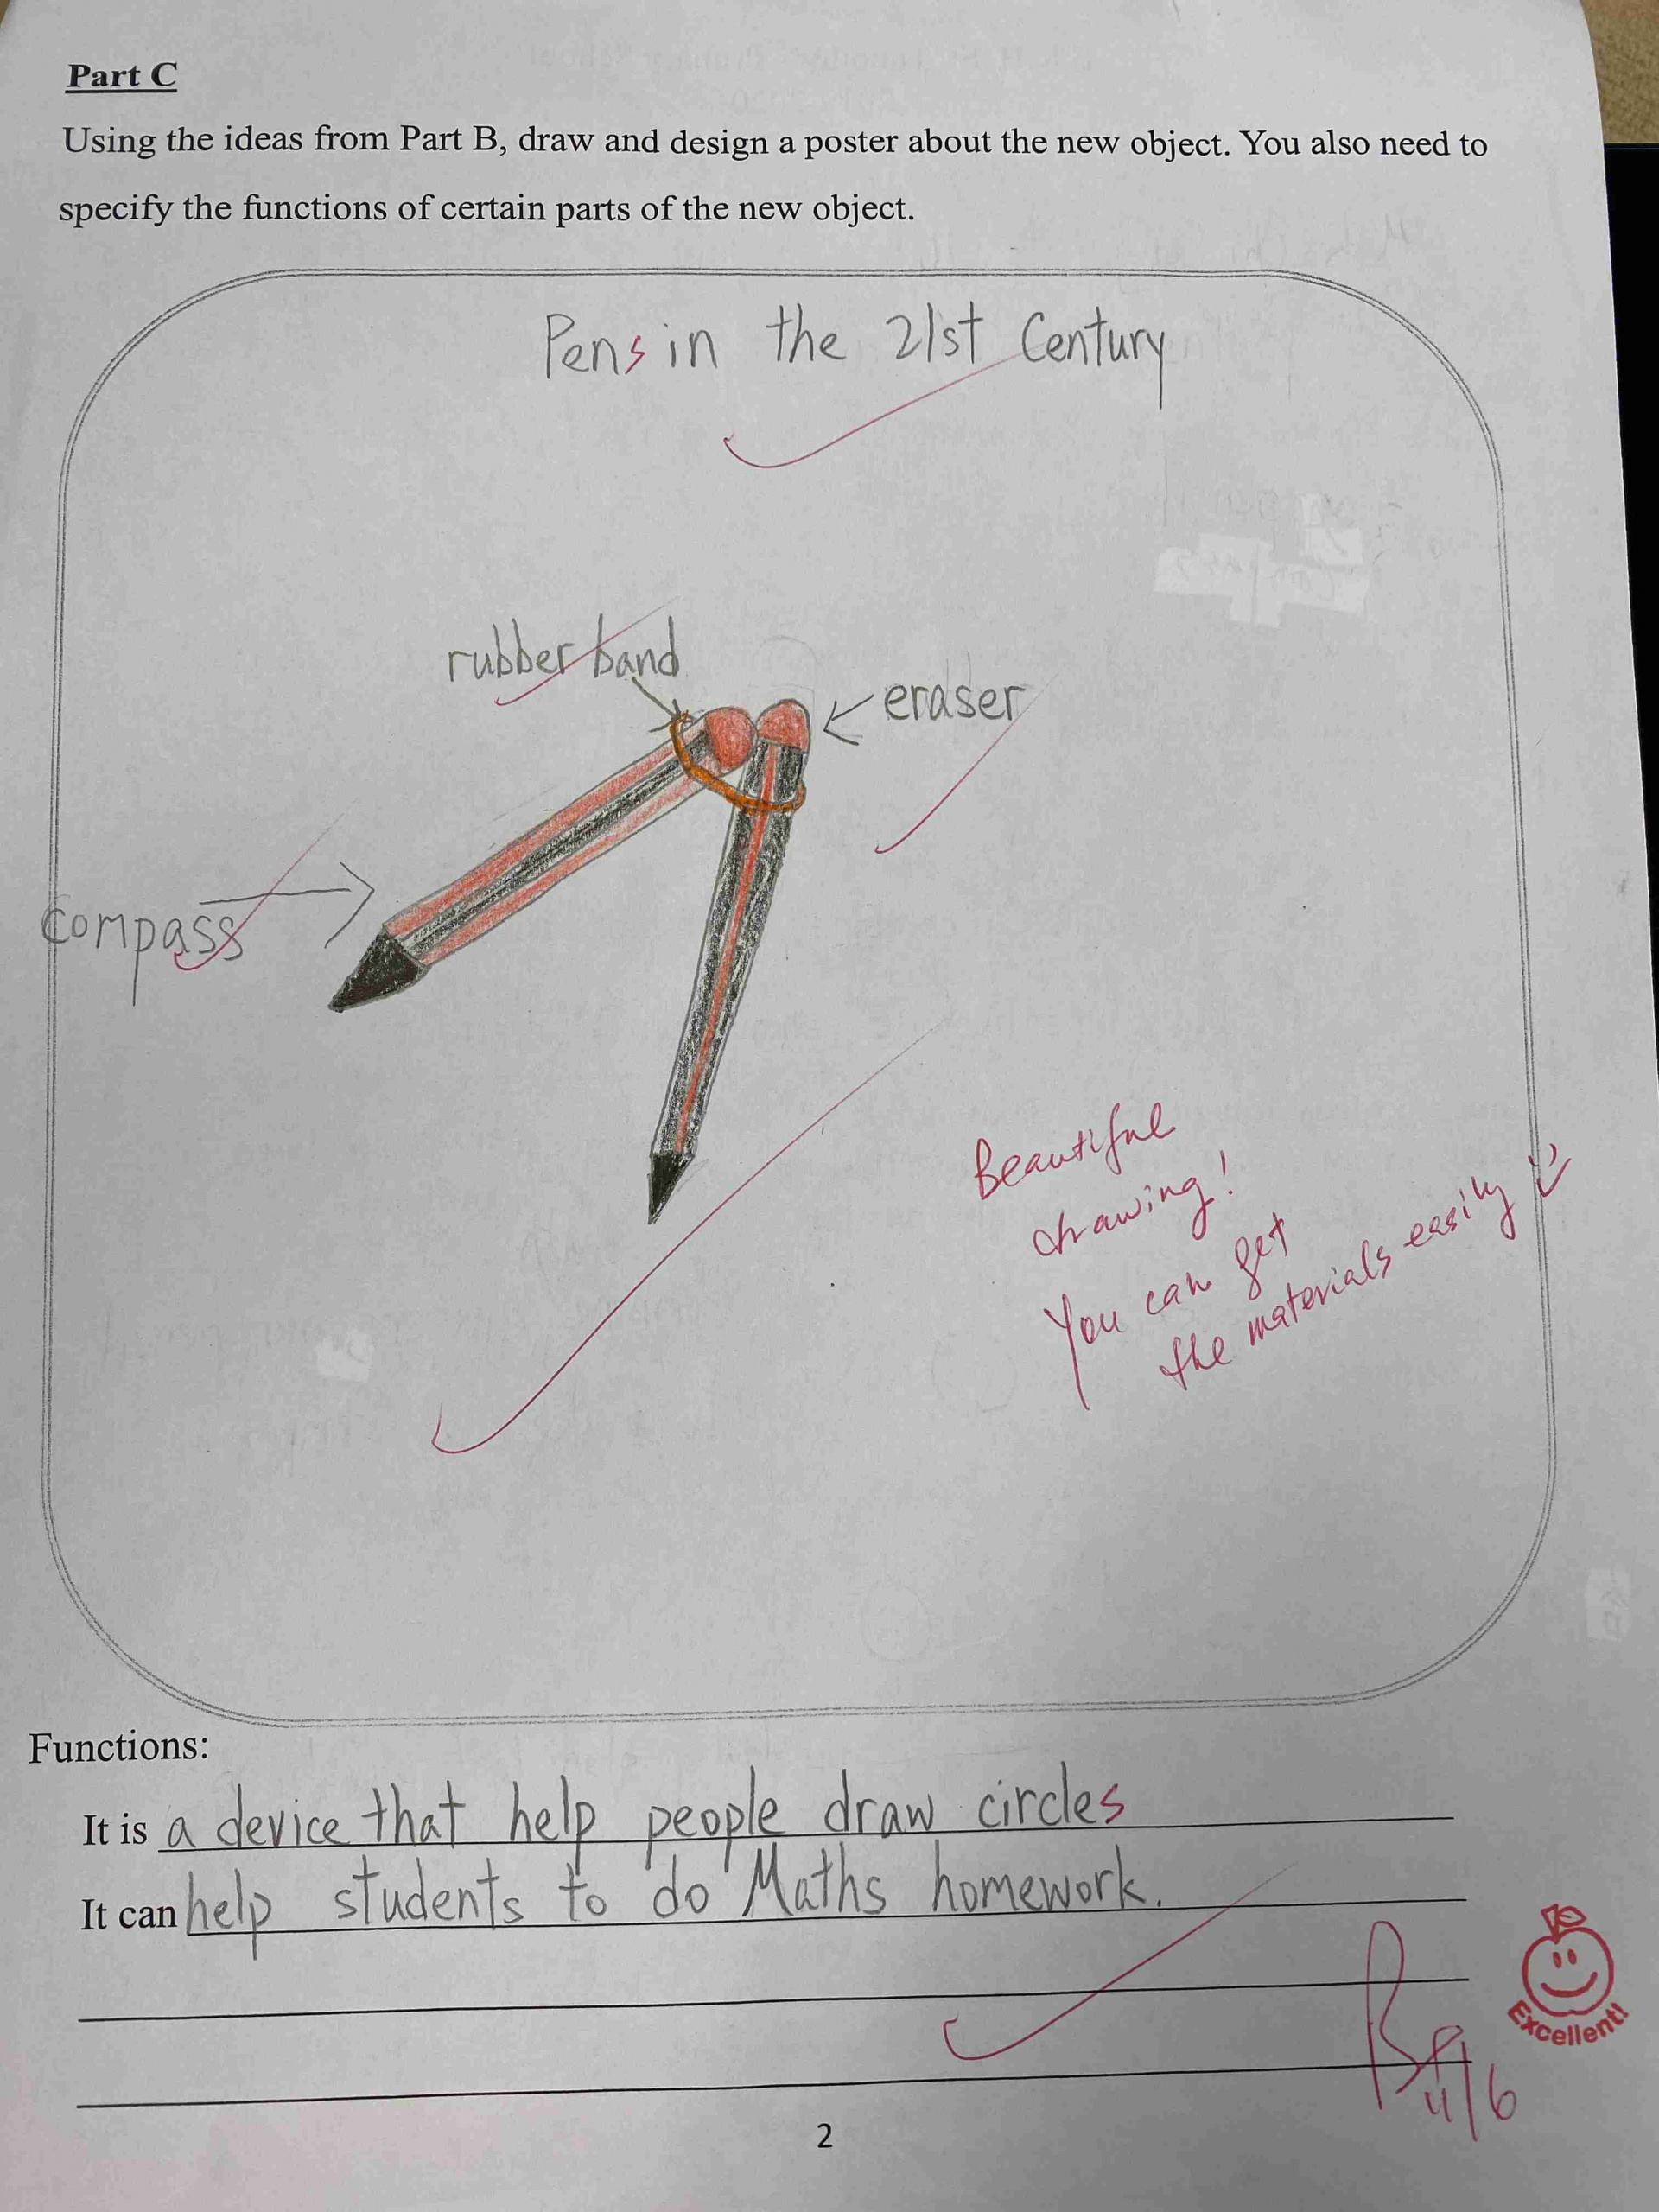 Part C
Using the ideas from Part B, draw and design a poster about the new object. You also need to
specify the functions of certain parts of the new object.
Pens in the 21st Century
rubber band
eraser
compass
Beautiful
drawing!
You can get
the materials easily
Functions:
It is a device that help people draw circles
It can help students to do Maths homework.
Excellent!
11/6
2